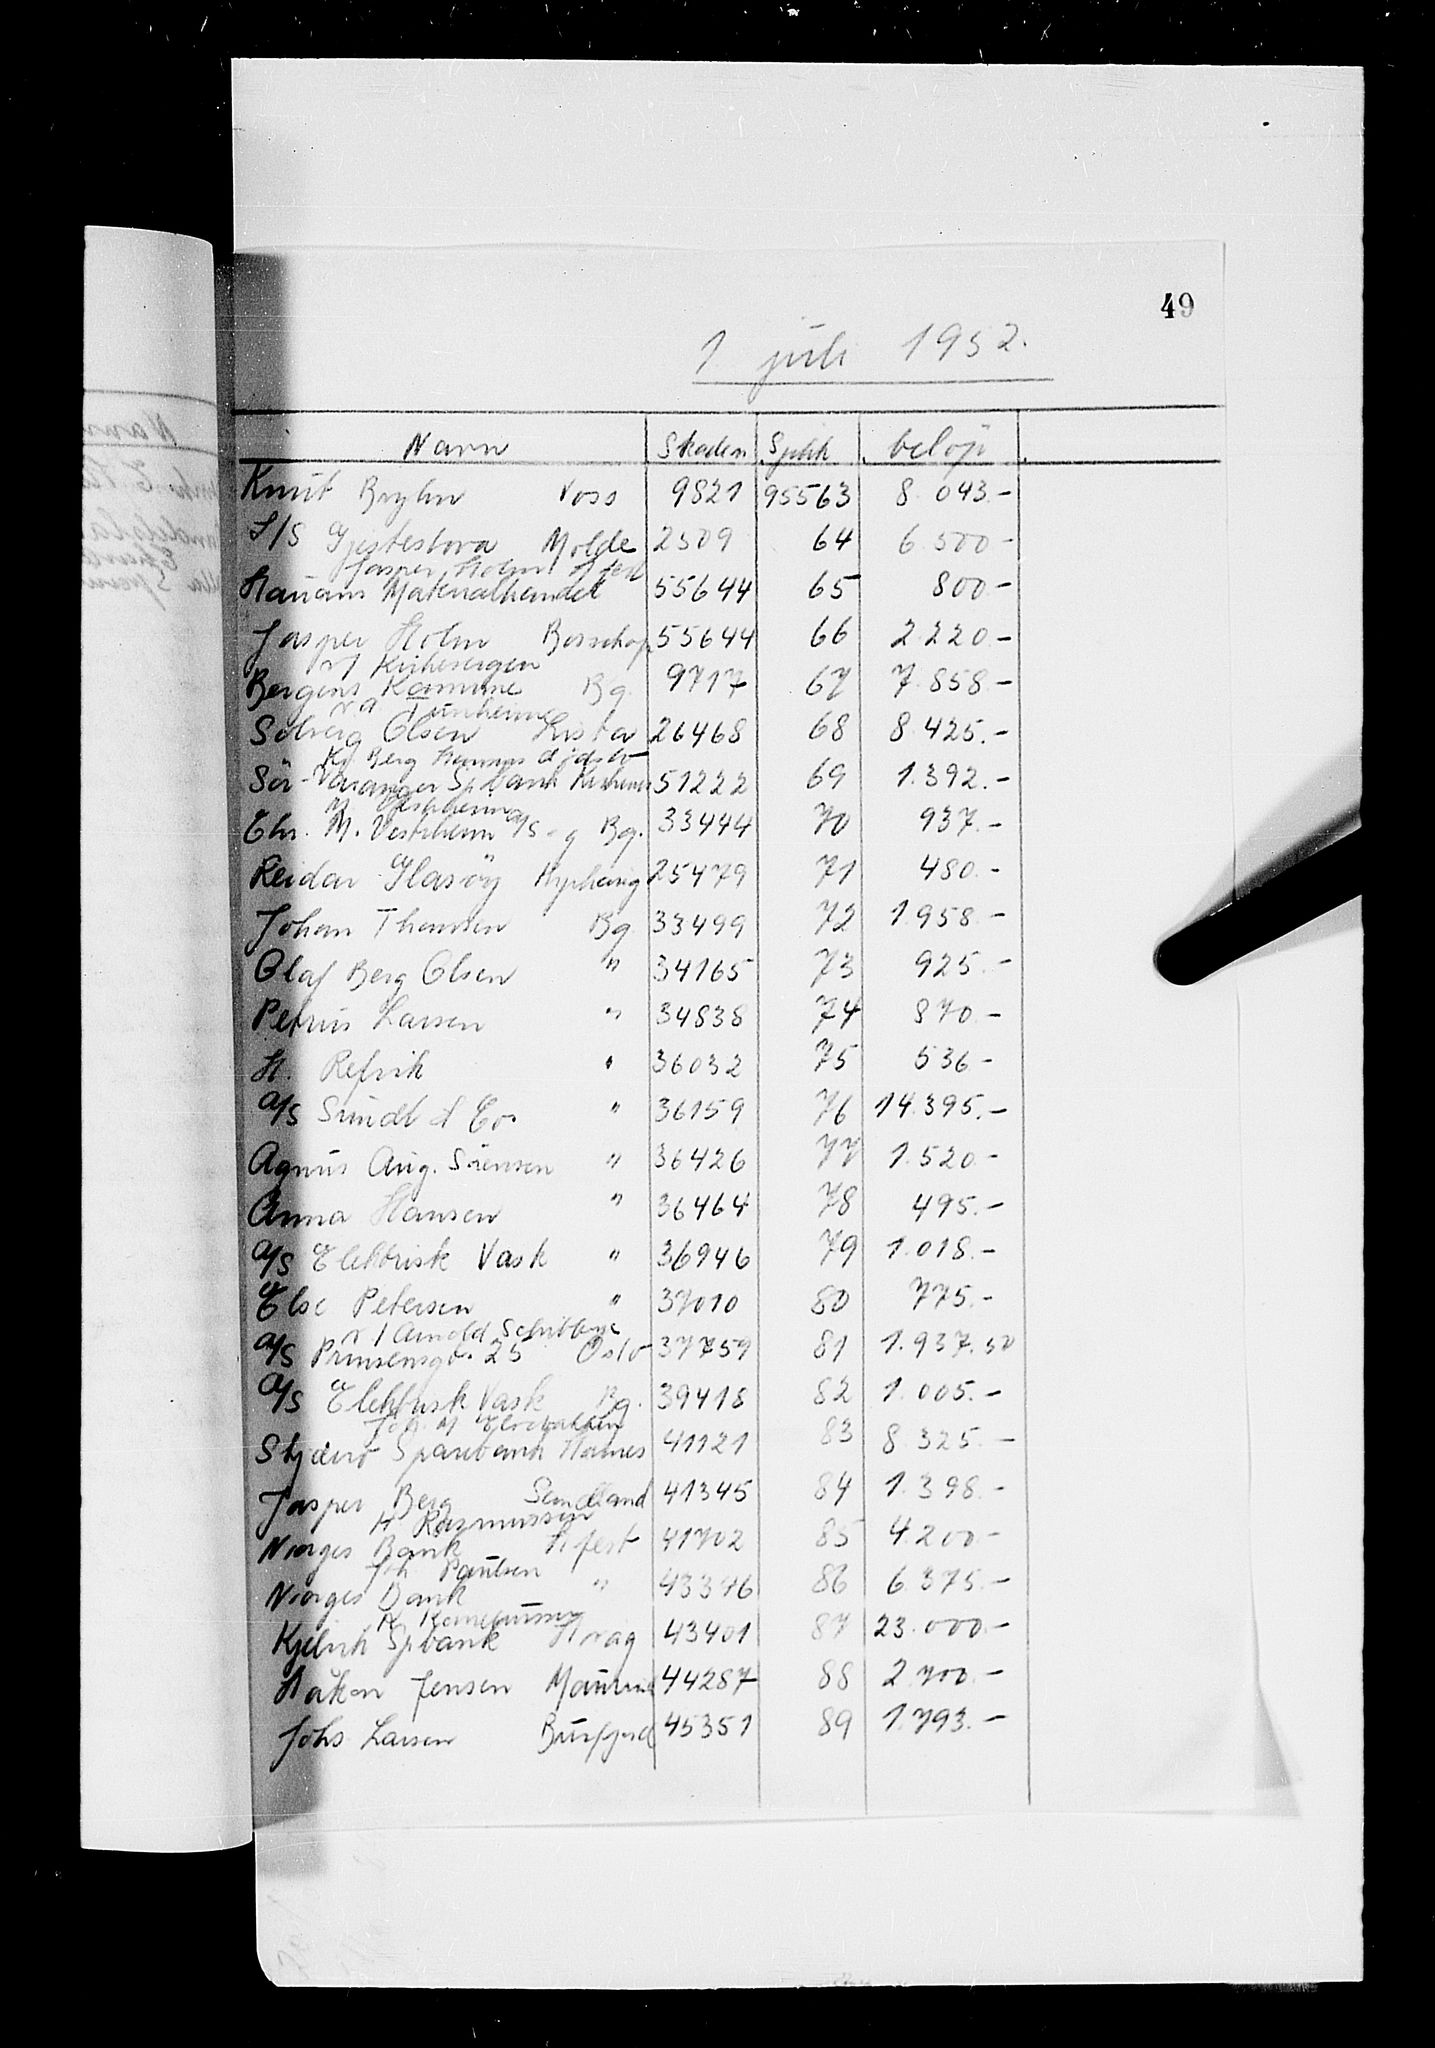 49
1 juli 1952.
Navn Skaden Spkk beløp
Knut Bryhn Voss 9821 95563 8.043.-
L/S Gjestestova Molde 2509 64 6.500-
Jasper Holm Hfest
Materialhandel 55644 65 800.-
Jasper Holm Bossekop 55644 66 2.220.-
v/ Kirkevergen
Bergens Komune Bg. 9717 67 7.858.-
Solveig Olsen 26468 68 8.425.-
Berg
Sör-Varanger Sp.bank Kirkenes 51222 69 1.392.-
Chr. M. Vestrheim A/S Bg. 33444 70 937.-
Reidar Glasöy 25479 71 480.-
Johan Thomsen Bg 33499 72 1.958.-
Olaf Berg Olsen " 34165 73 925.-
Petrus Larsen " 34838 74 870.-
H. Refvik " 36032 75 536.-
A/S Sundt & Co. " 36159 76 14.395.-
Agnus Aug. Sörensen " 36426 77 1.520.-
Anna Hansen " 36464 78 495.-
A/S Elektrisk Vask " 36946 79 1.018.-
Else Petersen " 37010 80 775.-
v/ Arnold
A/S Prinsensgt. 25 Oslo 37757 81 1.937.50
A/S Elektrisk Vask Bg. 39418 82 1.005.-
Sparebank Hamnes 41121 83 8.325.-
Jasper Berg Semdland 41345 84 1.398.-
H Rasmussen
Norges Bank Hfest 41702 85 4.200.-
Joh Paulsen
Norges Bank " 43376 86 6.375.-
Kjelvik Spbank Hvåg 43401 87 23.000.-
Håkon Jensen 44287 88 2.700.-
Johs Larsen Burfjord 45351 89 1.793.-